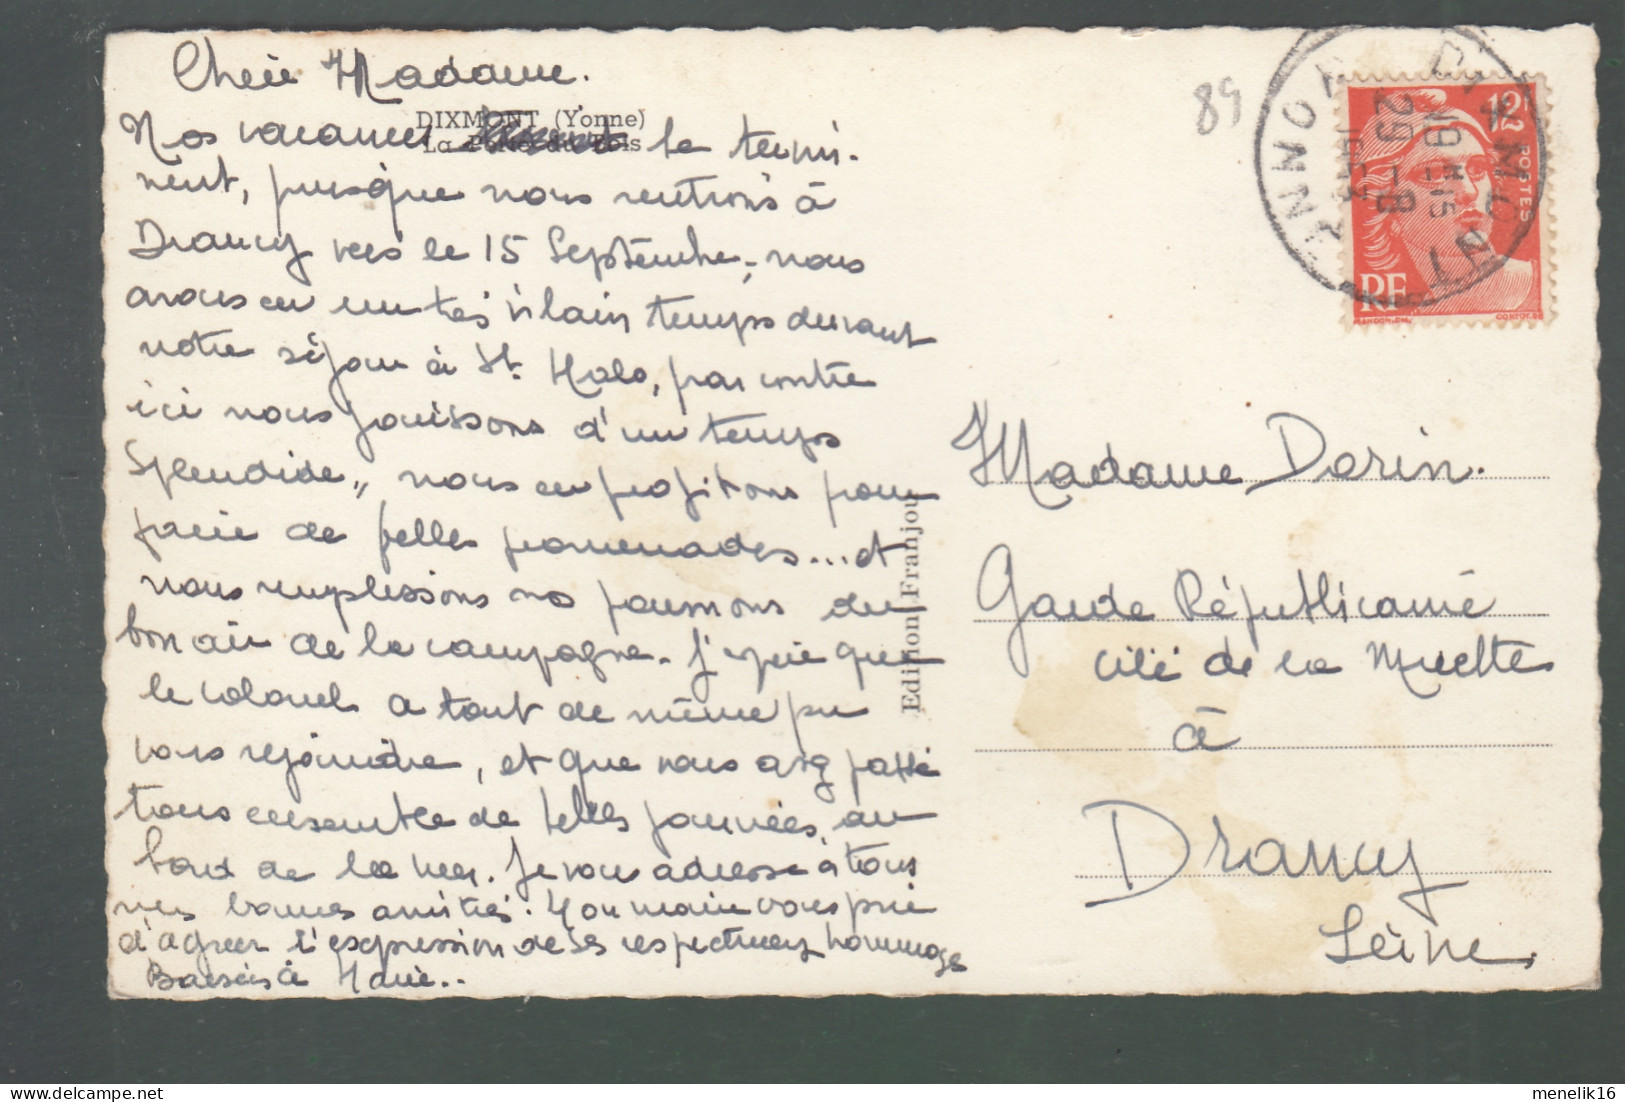 Chère Madame.
DIXMONT (Yonne)
Nos vacances se termi-
nent, puisque nous rentrons à
Drancy vers le 15 Septembre, nous
avons eu un très vilain temps durant
notre séjour à St. Malo, par contre
ici nous jouissons d'un temps
Splendide,, nous en profitons pour
faire de belles promenades... et
nous remplissons nos poumons du
bon air de la campagne. J'espère que
le colonel a tout de même pu
vous rejoindre, et que vous avez passé
tous ensemble de belles journées, au
bord de la mer. Je vous adresse à tous
mes bonnes amitiés. Mon mari vous prie
d'agréer l'expression de ses respectueux hommages
Baisers à Marie..
Edition Franjou
89
12F
POSTES
RF
DIXMONT
YONNE
29-8
Madame Dorin.
Garde Républicaine
cité de la Muette
à
Drancy
Seine.
menelik16